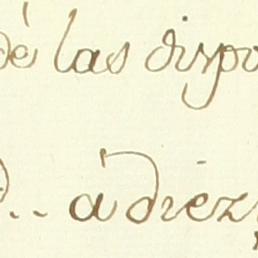 dé las dispo
.. à diez